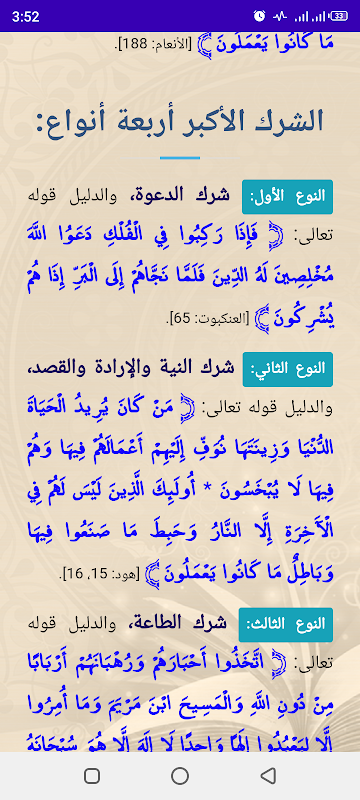 3:52
33
مَا كَانُوا يَعْمَلُونَ ﴾ [الأنعام: 188].
الشرك الأكبر أربعة أنواع:
النوع الأول: شرك الدعوة، والدليل قوله
تعالى: ﴿ فَإِذَا رَكِبُوا فِي الْفُلْكِ دَعَوُا اللَّهَ
مُخْلِصِينَ لَهُ الدِّينَ فَلَمَّا نَجَّاهُمْ إِلَى الْبَرِّ إِذَا هُمْ
يُشْرِكُونَ ﴾ [العنكبوت: 65].
النوع الثاني: شرك النية والإرادة والقصد،
والدليل قوله تعالى: ﴿ مَنْ كَانَ يُرِيدُ الْحَيَاةَ
الدُّنْيَا وَزِينَتَهَا نُوَفِّ إِلَيْهِمْ أَعْمَالَهُمْ فِيهَا وَهُمْ
فِيهَا لَا يُبْخَسُونَ * أُولَئِكَ الَّذِينَ لَيْسَ لَهُمْ فِي
الْآخِرَةِ إِلَّا النَّارُ وَحَبِطَ مَا صَنَعُوا فِيهَا
وَبَاطِلٌ مَا كَانُوا يَعْمَلُونَ ﴾ [هود: 15, 16].
النوع الثالث: شرك الطاعة، والدليل قوله
تعالى: ﴿ اتَّخَذُوا أَحْبَارَهُمْ وَرُهْبَانَهُمْ أَرْبَابًا
مِنْ دُونِ اللَّهِ وَالْمَسِيحَ ابْنَ مَرْيَمَ وَمَا أُمِرُوا
إِلَّا لِيَعْبُدُوا إِلَهًا وَاحِدًا لَا إِلَهَ إِلَّا هُوَ سُبْحَانَهُ